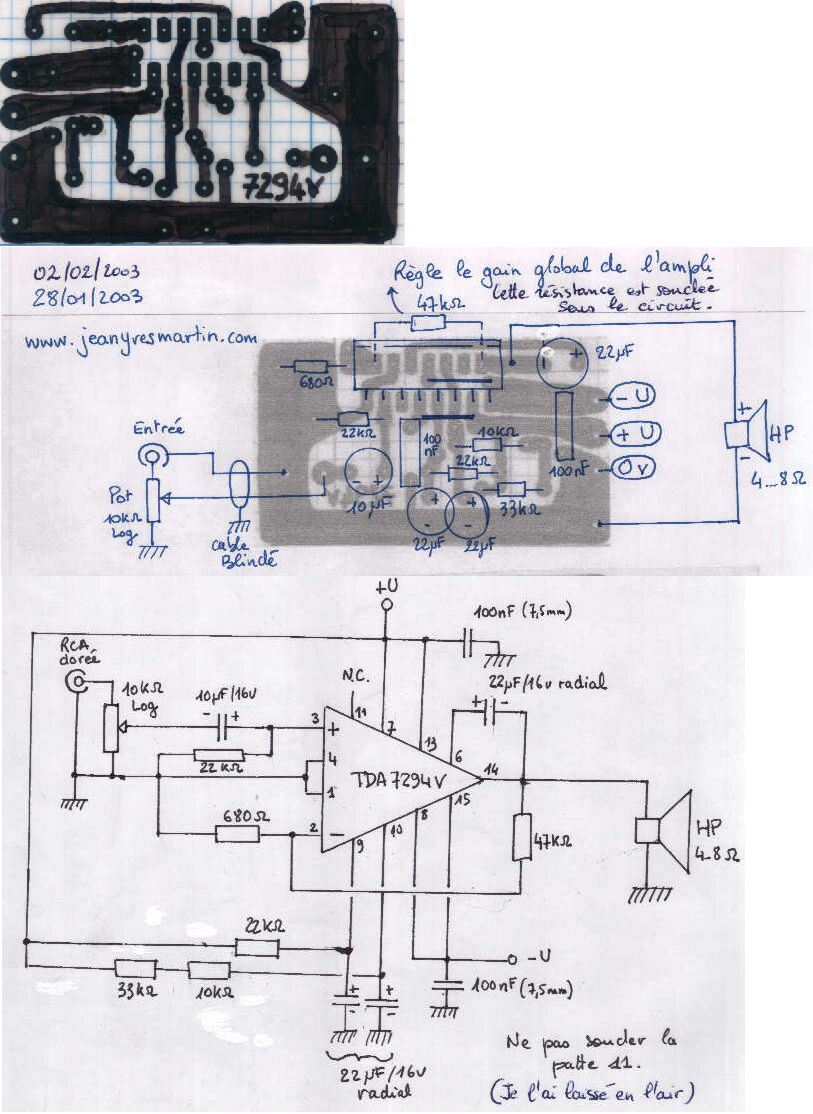 7294V
02/02/2003
28/01/2003
Règle le gain global de l'ampli
Cette résistance est soudée
sous le circuit.
47kΩ
www.jeanyvesmartin.com
680Ω
22µF
- U
+ U
0v
HP
+
-
4...8Ω
Entrée
Pot
10kΩ
Log
Cable
Blindé
22kΩ
100
nF
10kΩ
22kΩ
100nF
- +
10µF
33kΩ
+
-
22µF
+
-
22µF
+U
100nF (7,5mm)
RCA
dorée
10kΩ
Log
10µF/16V
- +
N.C.
22µF/16V radial
+ -
22kΩ
680Ω
3
+
4
1
2
-
11
7
13
6
14
15
8
10
9
TDA 7294V
47kΩ
HP
4..8Ω
22kΩ
33kΩ
10kΩ
-U
100nF (7,5mm)
+
-
+
-
22µF/16V
radial
Ne pas souder la
patte 11.
(Je l'ai laissé en l'air)